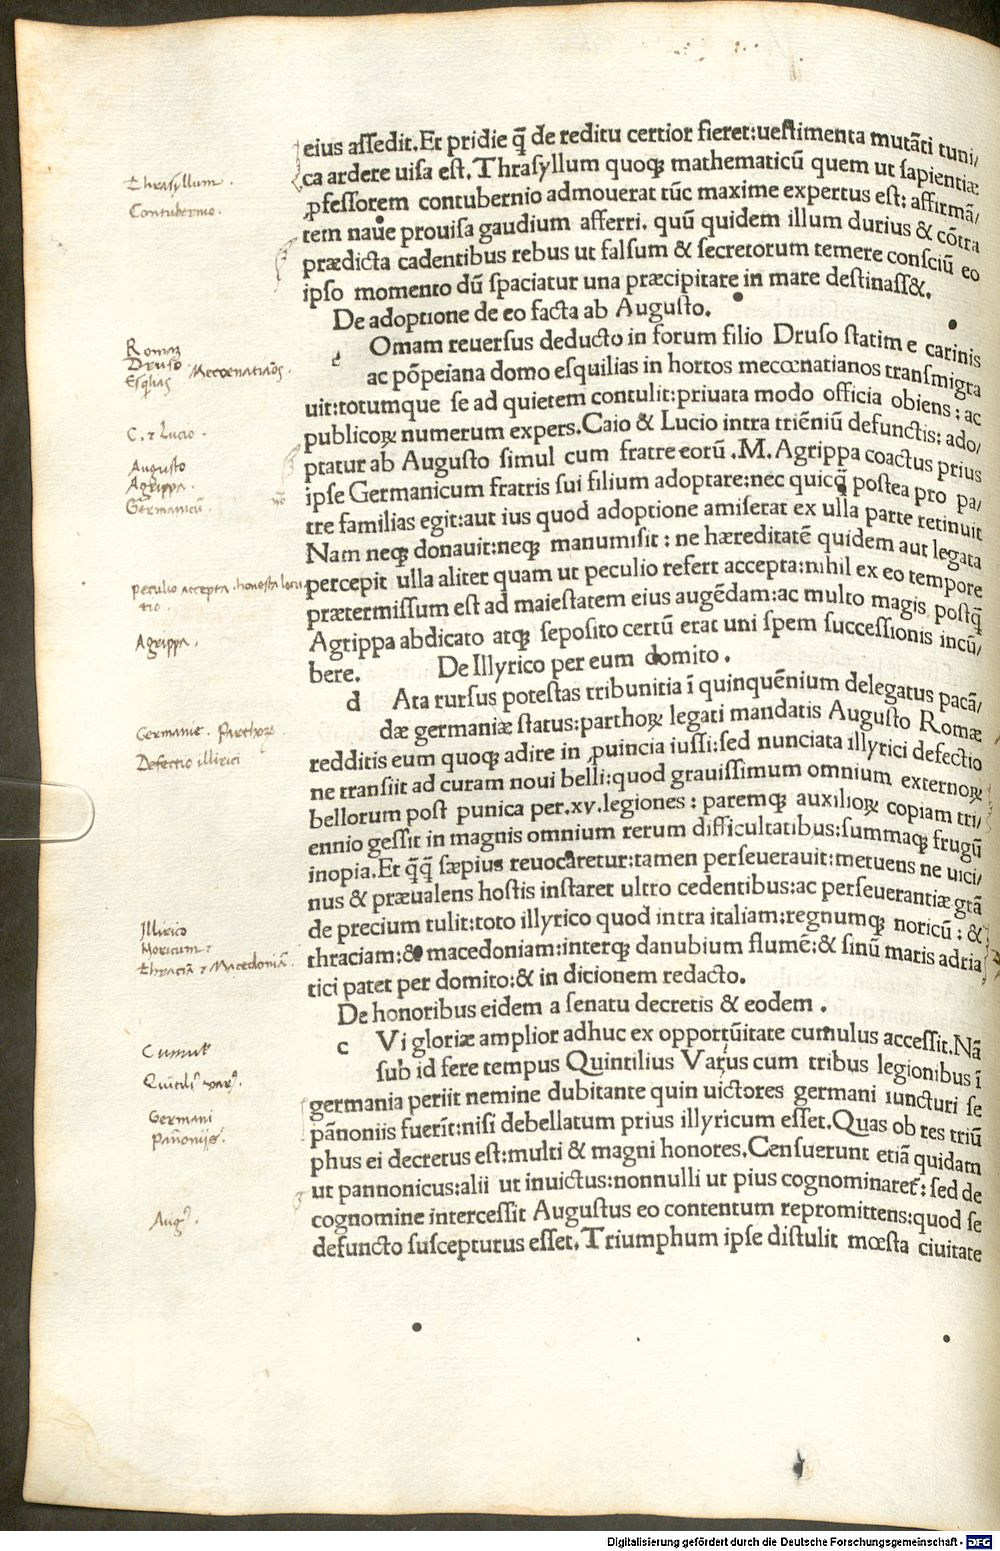 eius assedit.Et pridie q̄ de reditu certior fieret:uestimenta mutāti tuni/
ca ardere uisa est.Thrasyllum quoqꝫ mathematicū quem ut sapientiæ
ꝓfessorem contubernio admouerat tūc maxime expertus est: affirmā/
tem naue prouisa gaudium afferri. quū quidem illum durius & cōtra
prædicta cadentibus rebus ut falsum & secretorum temere consciū eo
ipso momento dū spaciatur una præcipitare in mare destinass&.
De adoptione de eo facta ab Augusto.
r Omam reuersus deducto in forum filio Druso statim e carinis
ac pōpeiana domo esquilias in hortos mecœnatianos transmigra
uit:totumque se ad quietem contulit:priuata modo officia obiens: ac
publicoꝝ numerum expers.Caio & Lucio intra triēniū defunctis: ado/
ptatur ab Augusto simul cum fratre eorū .M.Agrippa coactus prius
ipse Germanicum fratris sui filium adoptare:nec quicq̄ postea pro pa/
tre familias egit:aut ius quod adoptione amiserat ex ulla parte retinuit
Nam neqꝫ donauit:neqꝫ manumisit: ne hæreditatē quidem aut legata
percepit ulla aliter quam ut peculio refert accepta:nihil ex eo tempore
prætermissum est ad maiestatem eius augēdam:ac multo magis postq̄
Agrippa abdicato atqꝫ seposito certū erat uni spem successionis incū/
bere. De Illyrico per eum domito.
d Ata rursus potestas tribunitia ī quinquēnium delegatus pacā/
dæ germaniæ status:parthoꝝ legati mandatis Augusto Romæ
redditis eum quoqꝫ adire in ꝓuincia iussi:sed nunciata illyrici defectio
ne transiit ad curam noui belli:quod grauissimum omnium externoꝝ
bellorum post punica per.xv.legiones: paremqꝫ auxilioꝝ copiam tri/
ennio gessit in magnis omnium rerum difficultatibus:summaqꝫ frugū
inopia.Et q̄q̄ sæpius reuocaretur:tamen perseuerauit:metuens ne uici/
nus & præualens hostis instaret ultro cedentibus:ac perseuerantiæ grā
de precium tulit:toto illyrico quod intra italiam:regnumqꝫ noricū: &
thraciam:& macedoniam:interqꝫ danubium flumē:& sinū maris adria
tici patet per domito:& in dicionem redacto.
De honoribus eidem a senatu decretis & eodem.
c Vi gloriæ amplior adhuc ex opportūitate cumulus accessit.Nā
sub id fere tempus Quintilius Varus cum tribus legionibus ī
germania periit nemine dubitante quin uictores germani iuncturi se
pānoniis fuerīt:nisi debellatum prius illyricum esset.Quas ob res triū
phus ei decretus est:multi & magni honores.Censuerunt etiā quidam
ut pannonicus:alii ut inuictus:nonnulli ut pius cognominaret᷑: sed de
cognomine intercessit Augustus eo contentum repromittens:quod se
defuncto suscepturus esset.Triumphum ipse distulit mœsta ciuitate
Thrasyllum.
Contubernio.
Romæ
Druso
Esqlias Mecœnatianos.
C. & Lucio.
Augusto
Agrippa.
Germanicū.
peculio accepta. honesta locu
tio.
Agrippa.
Germanie. Parthoꝝ.
Defectio illirici
Illirico
Noricum &
Thraciā & Macedoniā.
Cumul9
Quītili9 var9.
Germani
pānoniis.
Aug9.
Digitalisierung gefördert durch die Deutsche Forschungsgemeinschaft - DFG